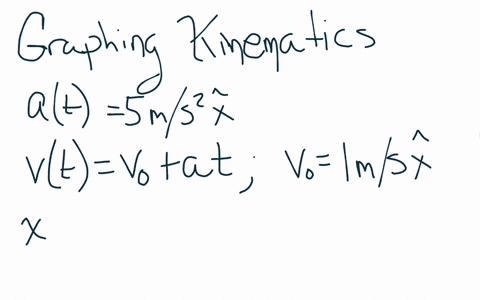 Graphing Kinematics
a(t) = 5 m/s² x̂
v(t) = v₀ + at ; v₀ = 1 m/s x̂
x